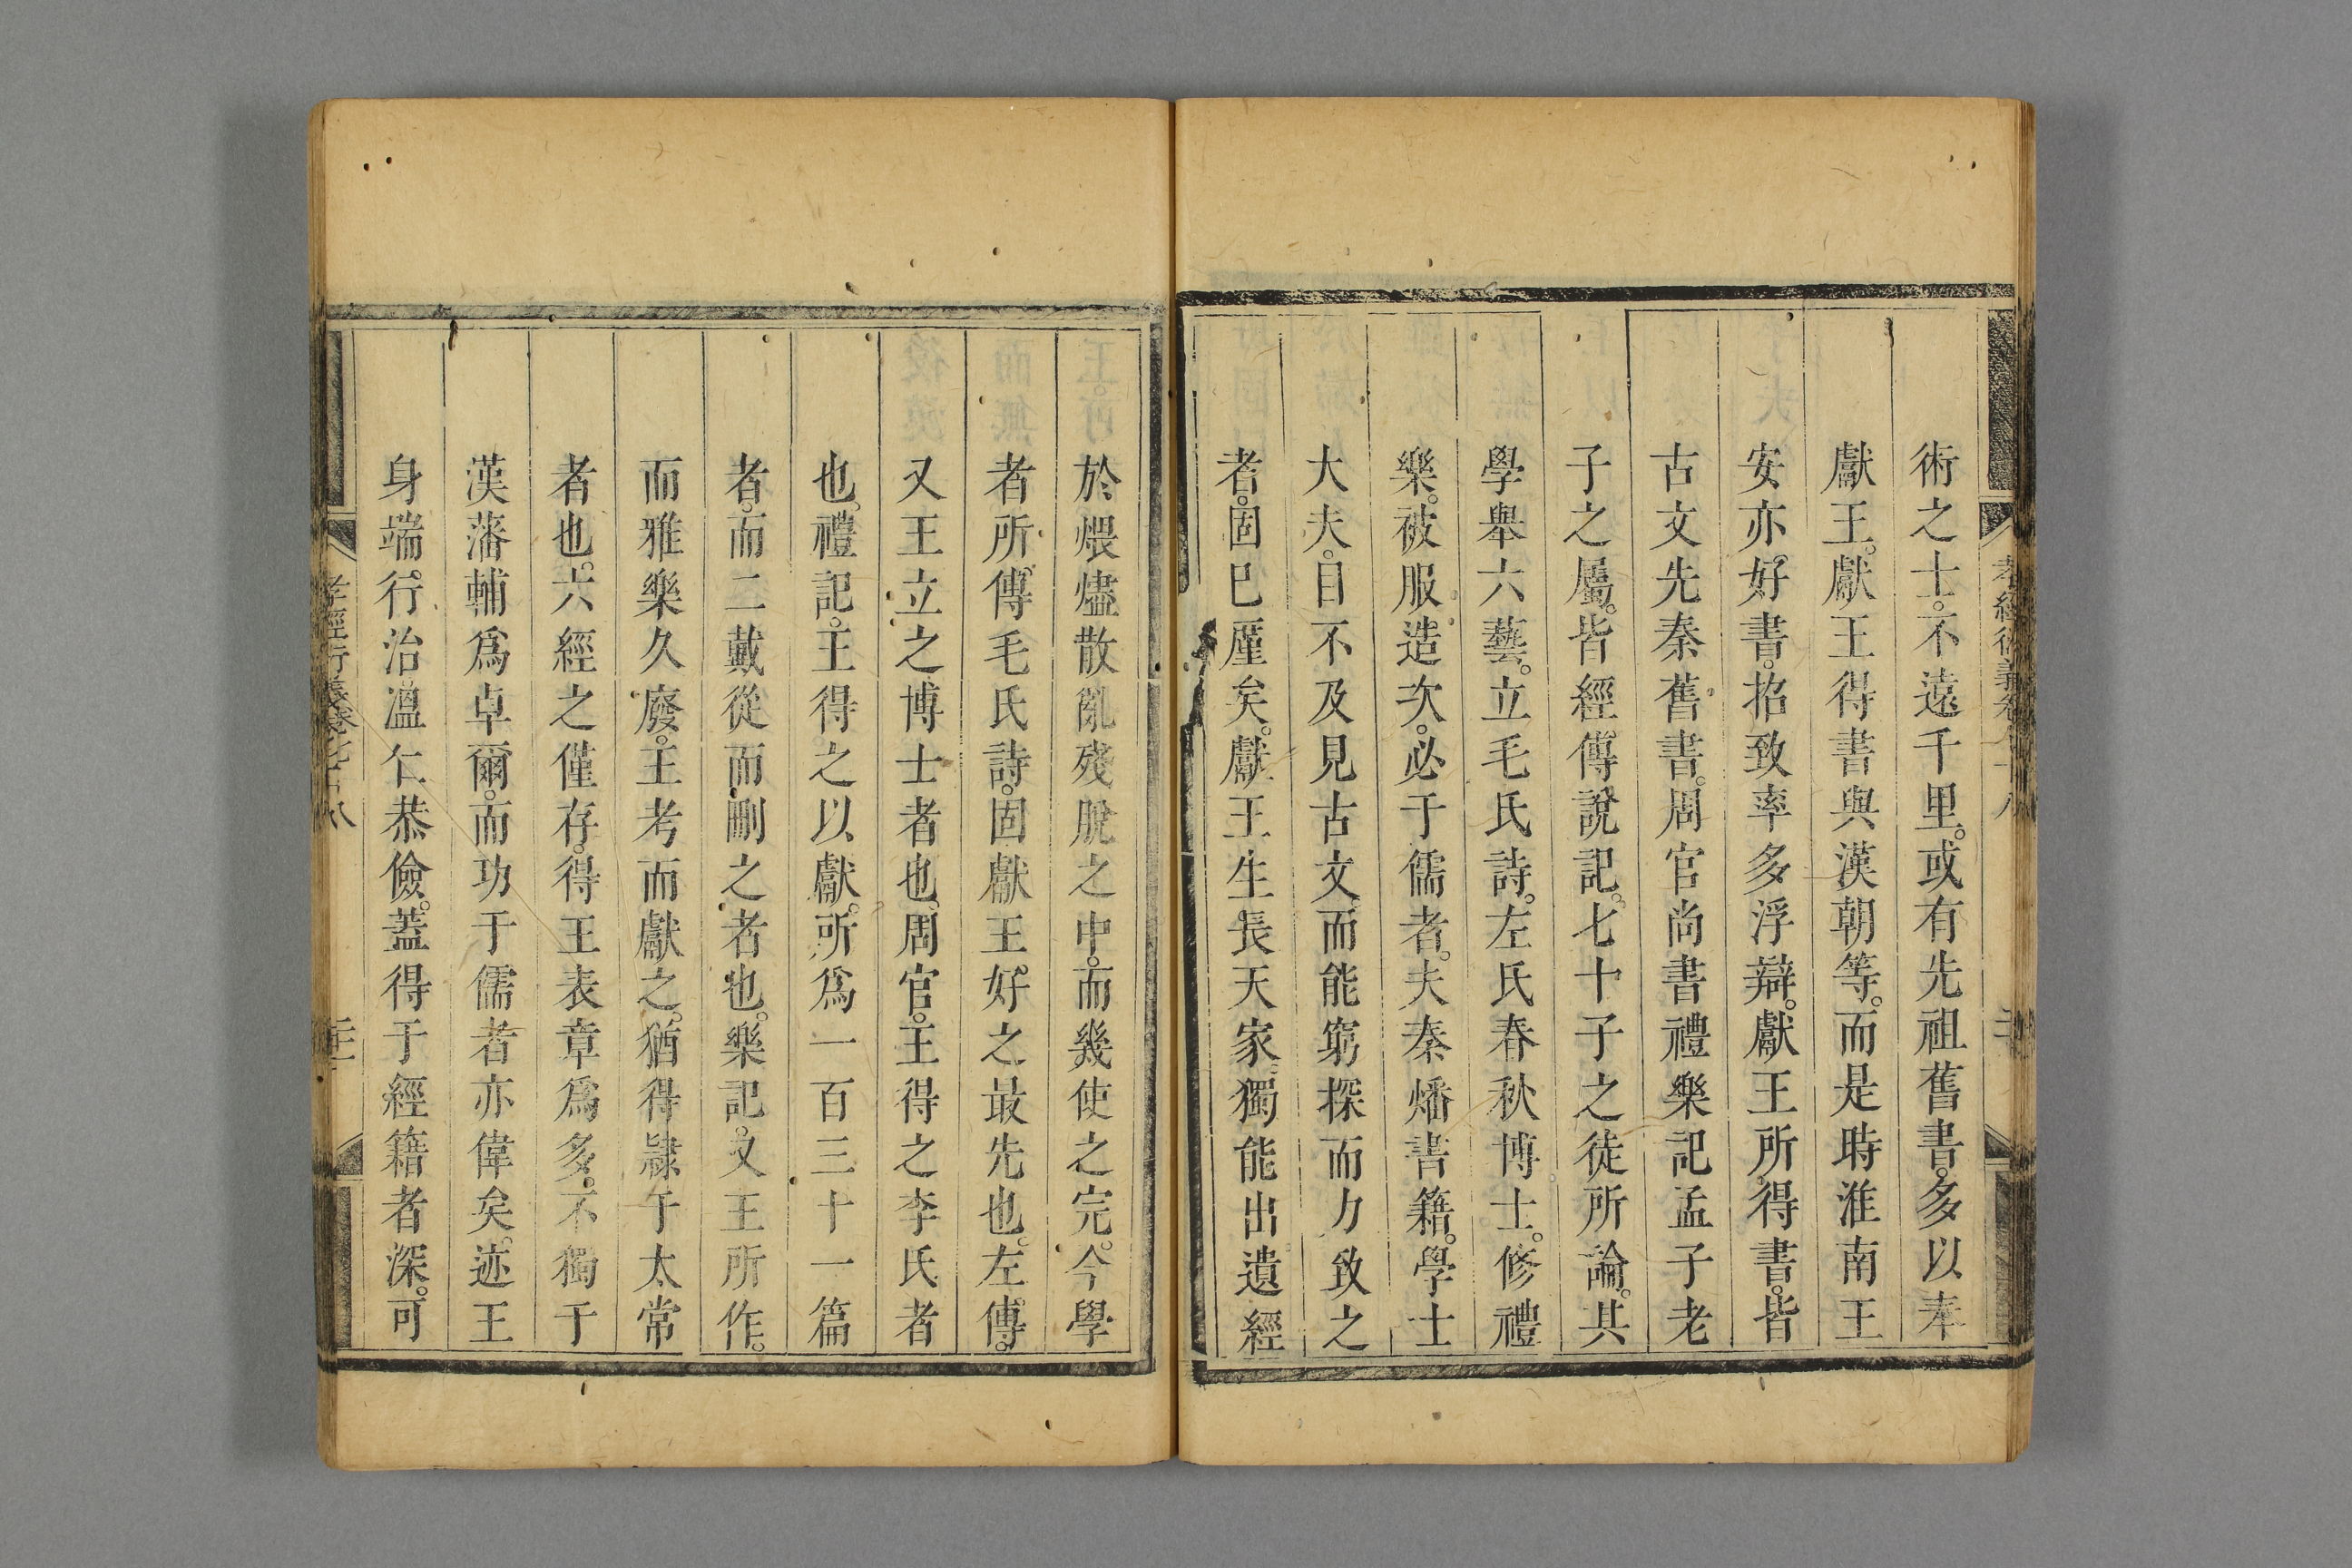 術之士。不遠千里。或有先祖舊書。多以奉
獻王。獻王得書與漢朝等。而是時淮南王
安亦好書。招致率多浮辯。獻王所得書。皆
古文先秦舊書。周官尚書禮樂記孟子老
子之屬。皆經傳說記。七十子之徒所論。其
學舉六藝。立毛氏詩。左氏春秋博士。修禮
樂。被服造次。必于儒者。夫秦燔書籍。學士
大夫。目不及見古文。而能窮探而力致之
者。固已厪矣。獻王生長天家。獨能出遺經
於煨燼散亂殘脫之中。而幾使之完。今學
者所傳毛氏詩。固獻王好之最先也。左傳。
又王立之博士者也。周官。王得之李氏者
也。禮記。王得之以獻。所爲一百三十一篇
者。而二戴從而刪之者也。樂記。又王所作。
而雅樂久廢。王考而獻之。猶得隷于太常
者也。六經之僅存。得王表章爲多。不獨于
漢藩輔爲卓爾。而功于儒者亦偉矣。迹王
身端行治。溫仁恭儉。蓋得于經籍者深。可